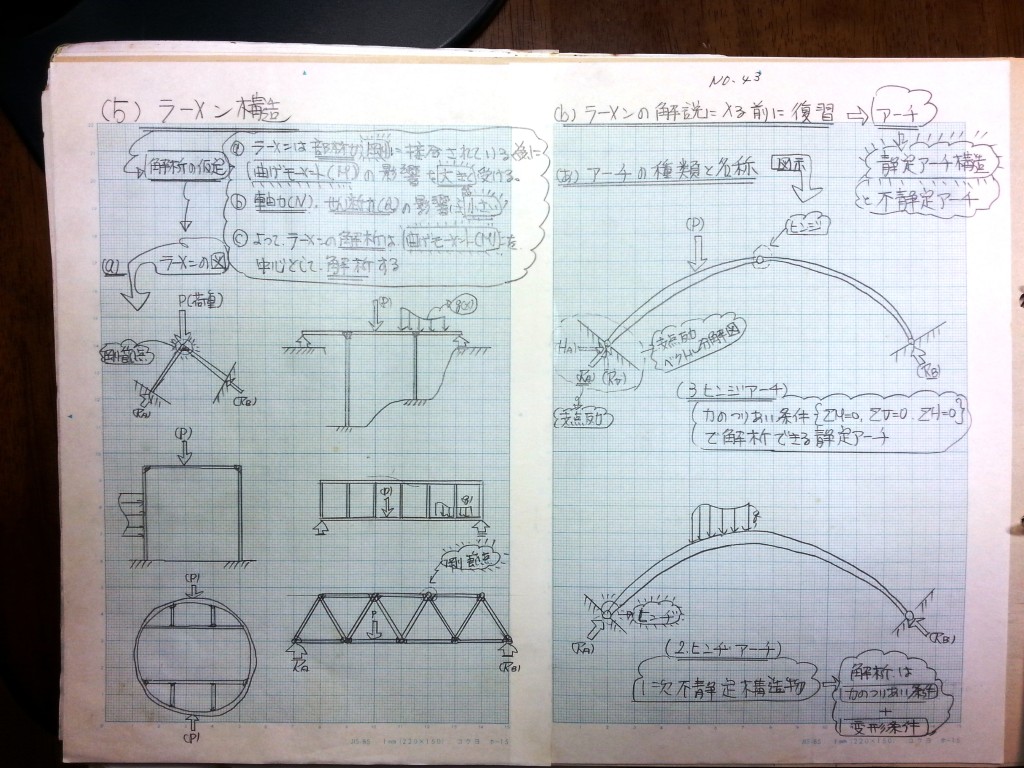 (5) ラーメン構造
解析の仮定
ⓐ ラーメンは部材が剛に接合されている為に
曲げモーメント(M)の影響を大きく受ける。
ⓑ 軸力(N)、せん断力(Q)の影響は小さい
ⓒ よって、ラーメンの解析は、曲げモーメント(M)を
中心として、解析する
(a) ラーメンの図
P(荷重)
剛節点
(RA)
(RB)
(P)
(P)
(P)
(P)
剛節点
(P)
P
RA
(RB)
(P)
NO.43
(b) ラーメンの解説に入る前に復習 ⇒ アーチ
静定アーチ構造
と不静定アーチ
(a) アーチの種類と名称 図示
(P)
ヒンジ
HA)
支点反力
ベクトル分解図
(RB)
支点反力
(3ヒンジアーチ)
力のつりあい条件{ΣM=0, ΣV=0, ΣH=0}
で解析できる静定アーチ
q
ヒンヂ
(RA)
(RB)
(2.ヒンヂアーチ)
1次不静定構造物
解析は
力のつりあい条件
+
変形条件